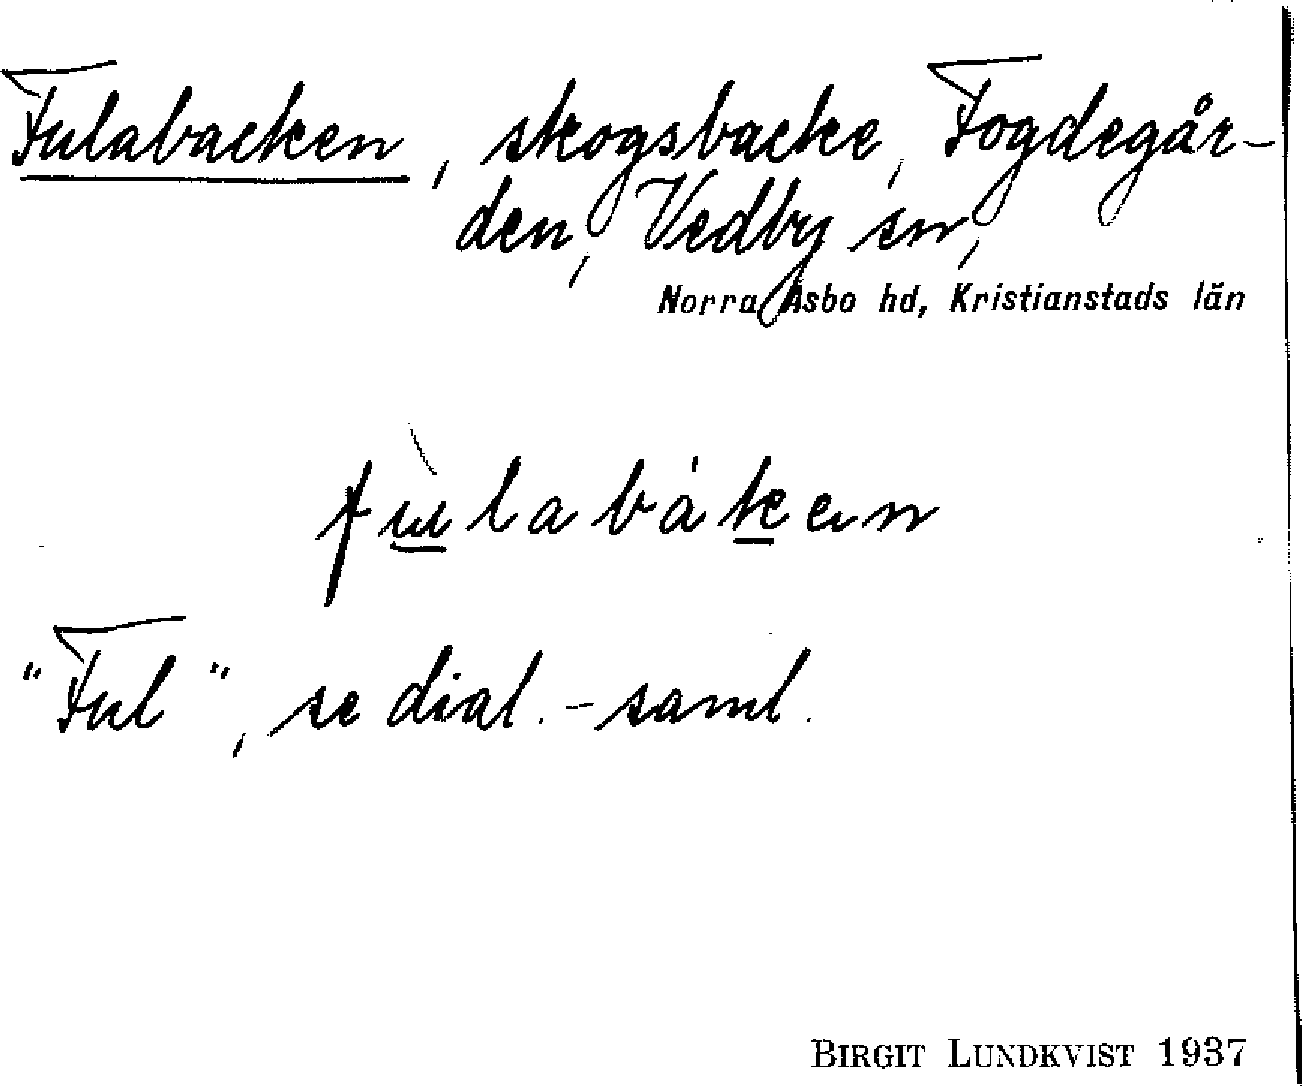 Fulabacken, skogsbacke, Fogdegår-
den, Vedby sn,
Norra Åsbo hd, Kristianstads län
fùlabáken
"Ful", se dial.-saml.
BIRGIT LUNDKVIST 1937